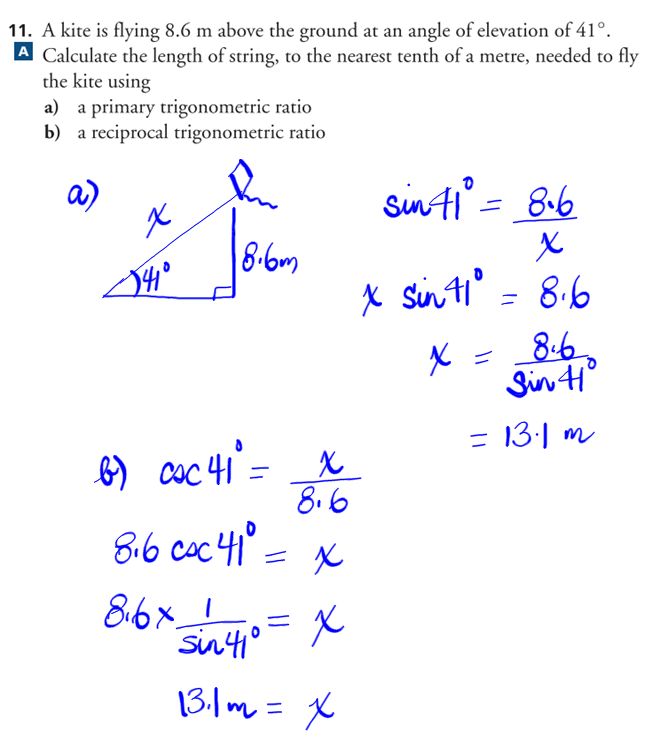 11. A kite is flying 8.6 m above the ground at an angle of elevation of 41°.
A Calculate the length of string, to the nearest tenth of a metre, needed to fly
the kite using
a) a primary trigonometric ratio
b) a reciprocal trigonometric ratio
a)
x
41°
8.6m
sin41° = 8.6/x
x sin41° = 8.6
x = 8.6/sin41°
= 13.1 m
b) csc41° = x/8.6
8.6 csc41° = x
8.6 × 1/sin41° = x
13.1m = x